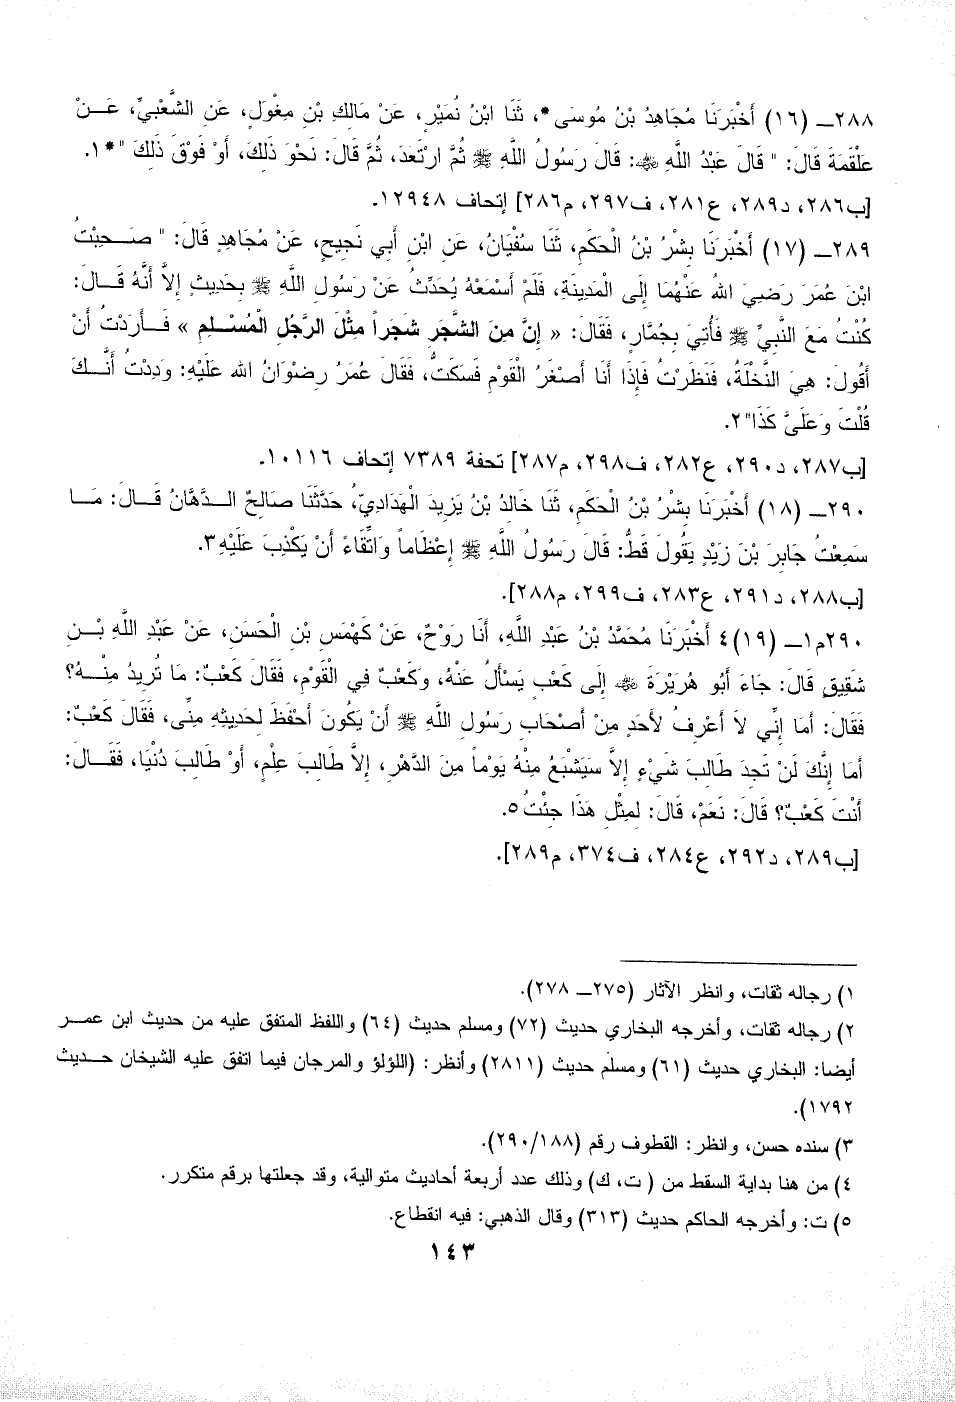 ٢٨٨ــ (١٦) أَخْبَرَنَا مُجَاهِدُ بْنُ مُوسَى*، ثَنَا ابْنُ نُمَيْرٍ، عَنْ مَالِكِ بْنِ مِغْوَلٍ، عَنِ الشَّعْبيِّ، عَـــنْ
عَلْقَمَةَ قَالَ: " قَالَ عَبْدُ اللَّهِ ﷺ: قَالَ رَسُولُ اللَّهِ ﷺ ثُمَّ ارْتَعَدَ، ثُمَّ قَالَ: نَحْوَ ذَلِكَ، أَوْ فَوْقَ ذَلِكَ "*١.
[ب٢٨٦، د٢٨٩، ع٢٨١، ف٢٩٧، م٢٨٦] إتحاف ١٢٩٤٨.
٢٨٩ــ (١٧) أَخْبَرَنَا بِشْرُ بْنُ الْحَكَمِ، ثَنَا سُفْيَانُ، عَنِ ابْنِ أَبي نَجيحٍ، عَنْ مُجَاهِدٍ قَالَ: " صَـــحِبْتُ
ابْنَ عُمَرَ رَضِيَ اللهُ عَنْهُمَا إِلَى الْمَدِينَةِ، فَلَمْ أَسْمَعْهُ يُحَدِّثُ عَنْ رَسُولِ اللَّهِ ﷺ بِحَدِيثٍ إِلاَّ أَنَّهُ قَـــالَ:
كُنْتُ مَعَ النَّبيِّ ﷺ فَأُتِيَ بِجُمَّارٍ، فَقَالَ: « إِنَّ مِنَ الشَّجَرِ شَجَراً مِثْلَ الرَّجُلِ الْمُسْــلِمِ » فَـــأَرَدْتُ أَنْ
أَقُولَ: هِيَ النَّخْلَةُ، فَنَظَرْتُ فَإِذَا أَنَا أَصْغَرُ الْقَوْمِ فَسَكَتُّ، فَقَالَ عُمَرُ رِضْوَانُ الله عَلَيْهِ: وَدِدْتُ أَنَّـــكَ
قُلْتَ وَعَلَيَّ كَذَا"٢.
[ب٢٨٧، د٢٩٠، ع٢٨٢، ف٢٩٨، م٢٨٧] تحفة ٧٣٨٩ إتحاف ١٠١١٦.
٢٩٠ــ (١٨) أَخْبَرَنَا بِشْرُ بْنُ الْحَكَمِ، ثَنَا خَالِدُ بْنُ يَزِيدَ الْهَدَادِيُّ، حَدَّثَنَا صَالِحٌ الـــدَّهَّانُ قَـــالَ: مَـــا
سَمِعْتُ جَابِرَ بْنَ زَيْدٍ يَقُولُ قَطُّ: قَالَ رَسُولُ اللَّهِ ﷺ إِعْظَاماً وَاتِّقَاءً أَنْ يَكْذِبَ عَلَيْهِ٣.
[ب٢٨٨، د٢٩١، ع٢٨٣، ف٢٩٩، م٢٨٨].
٢٩٠م١ــ (١٩)٤ أَخْبَرَنَا مُحَمَّدُ بْنُ عَبْدِ اللَّهِ، أَنَا رَوْحٌ، عَنْ كَهْمَسِ بْنِ الْحَسَنِ، عَنْ عَبْدِ اللَّهِ بْـــنِ
شَقِيقٍ قَالَ: جَاءَ أَبُو هُرَيْرَةَ ﷺ إِلَى كَعْبٍ يَسْأَلُ عَنْهُ، وَكَعْبٌ فِي الْقَوْمِ، فَقَالَ كَعْبٌ: مَا تُرِيدُ مِنْـــهُ؟
فَقَالَ: أَمَا إِنِّي لاَ أَعْرِفُ لأَحَدٍ مِنْ أَصْحَابِ رَسُولِ اللَّهِ ﷺ أَنْ يَكُونَ أَحْفَظَ لِحَدِيثِهِ مِنِّي، فَقَالَ كَعْبٌ:
أَمَا إِنَّكَ لَنْ تَجِدَ طَالِبَ شَيْءٍ إِلاَّ سَيَشْبَعُ مِنْهُ يَوْماً مِنَ الدَّهْرِ، إِلاَّ طَالِبَ عِلْمٍ، أَوْ طَالِبَ دُنْيَا، فَقَـــالَ:
أَنْتَ كَعْبٌ؟ قَالَ: نَعَمْ، قَالَ: لِمِثْلِ هَذَا جِئْتُ٥.
[ب٢٨٩، د٢٩٢، ع٢٨٤، ف٣٧٤، م٢٨٩].
١) رجاله ثقات، وانظر الآثار (٢٧٥ــ ٢٧٨).
٢) رجاله ثقات، وأخرجه البخاري حديث (٧٢) ومسلم حديث (٦٤) واللفظ المتفق عليه من حديث ابن عمـــر
أيضا: البخاري حديث (٦١) ومسلم حديث (٢٨١١) وأنظر: (اللؤلؤ والمرجان فيما اتفق عليه الشيخان حـــديث
١٧٩٢).
٣) سنده حسن، وانظر: القطوف رقم (٢٩٠/١٨٨).
٤) من هنا بداية السقط من ( ت، ك) وذلك عدد أربعة أحاديث متوالية، وقد جعلتها برقم متكرر.
٥) ت: وأخرجه الحاكم حديث (٣١٣) وقال الذهبي: فيه انقطاع.
١٤٣